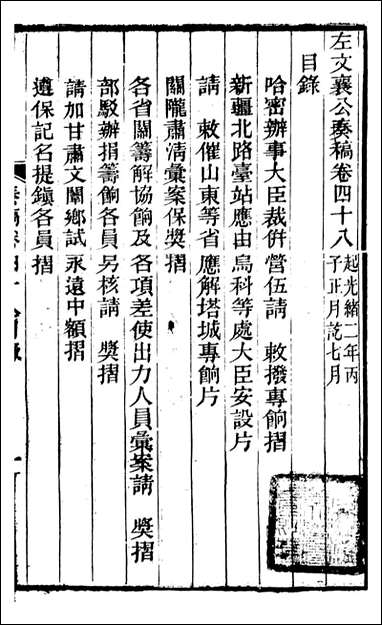 左文襄公奏稿卷四十八 起光緒二年丙
子正月訖七月
目錄
哈密辦事大臣裁併營伍請 敕撥專餉摺
新疆北路臺站應由烏科等處大臣安設片
請 敕催山東等省應解塔城專餉片
關隴肅清彙案保獎摺
各省關籌解協餉及各項差使出力人員彙案請 獎摺
部駁辦捐籌餉各員另核請 獎摺
請加甘肅文闈鄉試永遠中額摺
遵保記名提鎮各員摺